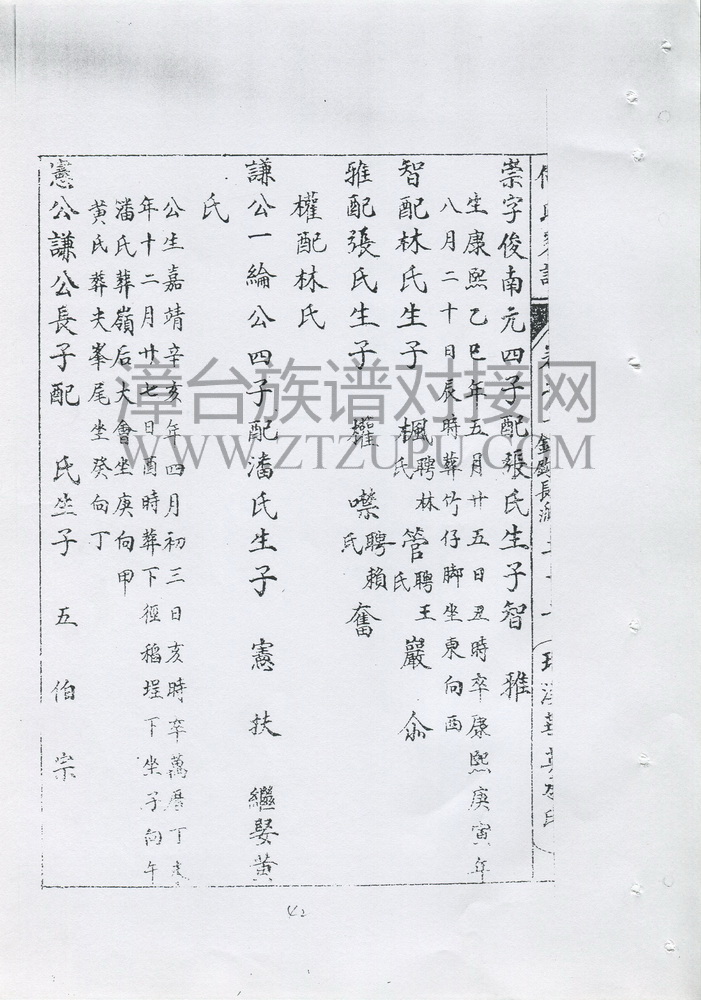 崇字俊南元四子配張氏生子智 雅
生康熙乙巳年五月廿五日丑時卒康熙庚寅年
八月二十日辰時葬竹仔脚坐東向酉
智配林氏生子 楓聘林氏 管聘王氏 巖 俞
雅配張氏生子 權 聘賴氏 奮
權配林氏
謙公一綸公四子配潘氏生子 憲 扶 繼娶黄
氏
公生嘉靖辛亥年四月初三日亥時卒萬曆丁
年十二月廿七日酉時葬下徑稻埕下坐子向午
潘氏葬嶺后大會坐庚向甲
黄氏葬夫峯尾坐癸向丁
憲公謙公長子配 氏生子 五 伯 宗
42
漳台族谱对接网
WWW.ZTZUPU.COM